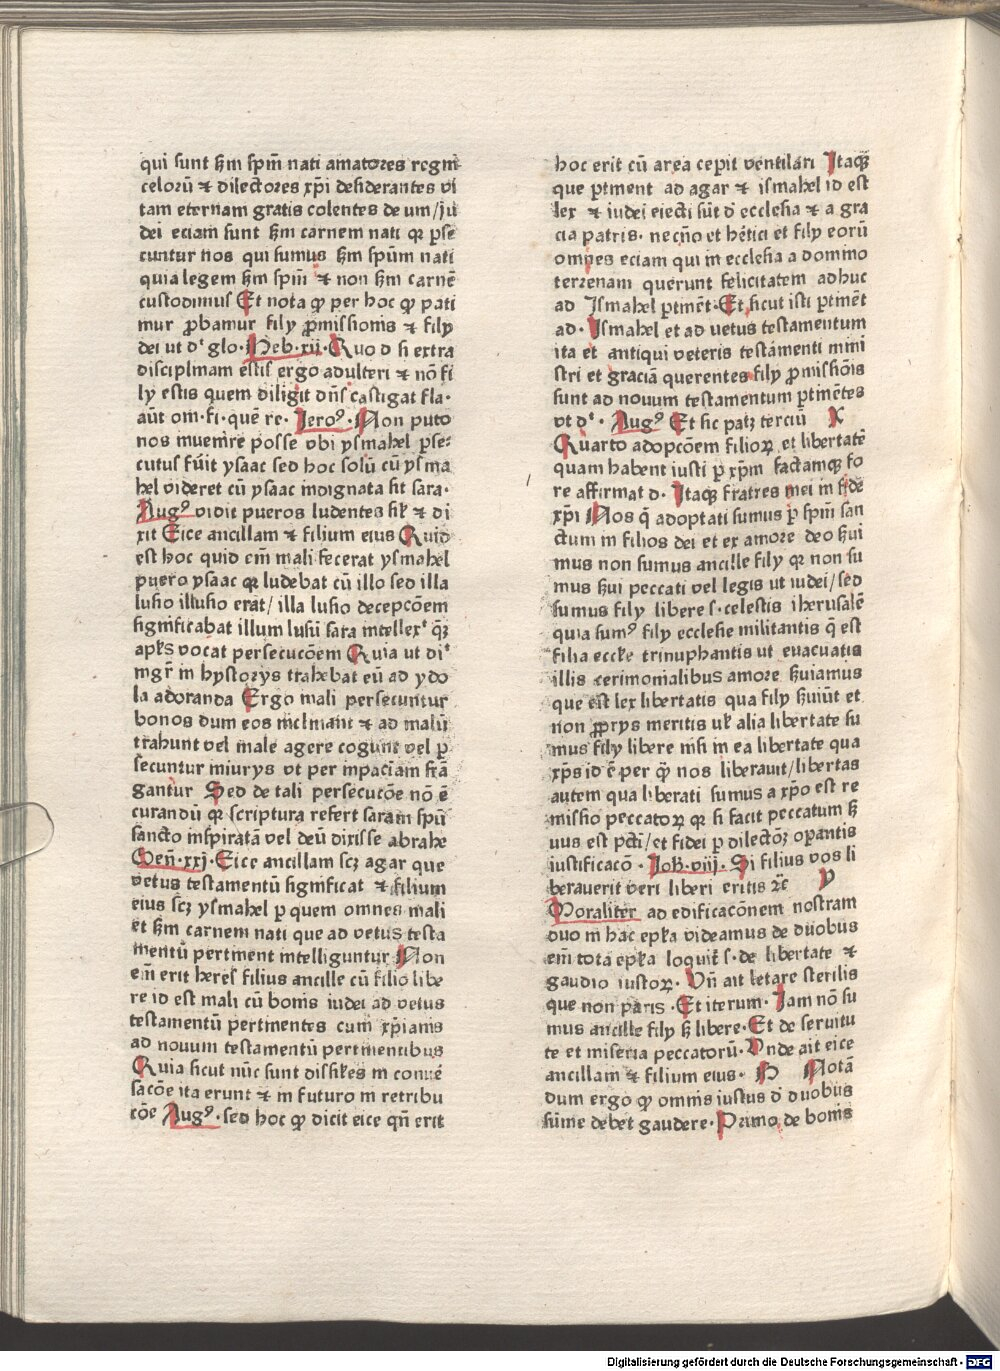 qui sunt ẜm spm̄ nati amatores regni
celorū ⁊ dilectores xp̄i desiderantes vi
tam eternam gratis colentes deum/iu
dei eciam sunt ẜm carnem nati qr ꝑse
cuntur nos qui sumus ẜm spūm nati
quia legem ẜm spm̄ ⁊ non ẜm carnē
custodimus Et nota ꝙ per hoc ꝙ pati
mur ꝓbamur filij ꝓmissionis ⁊ filij
dei ut dt glo. Heb.xij. Quod si extra
disciplinam estis ergo adulteri ⁊ nō fi
lij estis quem diligit dn̄s castigat fla.
aūt om.fi.quē re. Iero⁹. Non puto
nos inuenire posse vbi ysmahel ꝑse
cutus fuīt ysaac sed hoc solū cū ysma
hel videret cū ysaac indignata sit sara.
Aug⁹ vidit pueros ludentes sil̄ ⁊ di
xit Eice ancillam ⁊ filium eius Quid
est hoc quid em̄ mali fecerat ysmahel
puero ysaac qr ludebat cū illo sed illa
lusio illusio erat/ illa lusio decepcōem
significabat illum lusū sara intellext qꝫ
apl̄s vocat persecucōem Quia ut dit
mgr̄ in hystorijs trahebat eū ad ydo
la adoranda Ergo mali persecuntur
bonos dum eos inclinant ⁊ ad malū
trahunt vel male agere cogunt vel ꝑ
secuntur iniurijs vt per inpaciam frā
gantur Sed de tali persecutōe nō ē
curandū qr scriptura refert saram spū
sancto inspiratā vel deū dixisse abrahe
Gen̄.xxj. Eice ancillam scꝫ agar que
vetus testamentū significat ⁊ filium
eius scꝫ ysmahel ꝑ quem omnes mali
et ẜm carnem nati que ad vetus testa
mentū pertinent intelliguntur Non
em̄ erit heres filius ancille cū filio libe
re id est mali cū bonis iudei ad vetus
testamentū pertinentes cum xp̄ianis
ad nouum testamentū pertinentibus
Quia sicut nūc sunt dissil̄es in conuē
sacōe ita erunt ⁊ in futuro in retribu
cōe Aug⁹. sed hoc ꝙ dicit eice qn̄ erit
hoc erit cū area cepit ventilari Itaqꝫ
que ꝑtinent ad agar ⁊ ismahel id est
lex ⁊ iudei eiecti sūt d ecclesia ⁊ a gra
cia patris. necn̄o et hētici et filij eorū
omnes eciam qui in ecclesia a domino
terrenam querunt felicitatem adhuc
ad Ismahel ꝑtinēt. Et sicut isti ꝑtinēt
ad. Ismahel et ad uetus testamentum
ita et antiqui veteris testāmenti mini
stri et graciā querentes filij ꝓmissiōis
sunt ad nouum testamentum ꝑtinētes
vt dt. Aug⁹ Et sic patꝫ terciū X
Quarto adopcōem filioꝝ et libertatē
quam habent iusti ꝑ xp̄m factamqꝫ fo
re affirmat d. Itaqꝫ fratres mei in fide
xp̄i Nos q̄ adoptati sumus ꝑ spm̄ san
ctum in filios dei et ex amore deo ẜui
mus non sumus ancille filij qr non su
mus ẜui peccati vel legis ut iudei/sed
sumus filij libere s.celestis iherusalē
quia sum⁹ filij ecclesie militantis q̄ est
filia eccl̄e triumphantis ut euacuatis
illis cerimonialibus amore ẜuiamus
que est lex libertatis qua filij ẜuiūt et
non ꝓprijs meritis ul̄ alia libertate su
mus filij libere nisi in ea libertate qua
xp̄s id ē per q̄ nos liberauit/libertas
autem qua liberati sumus a xp̄o est re
missio peccatoꝝ qr si facit peccatum ẜ
uus est pcti/et fidei ꝑ dilectōꝫ oꝑantis
iustificacō. Ioh.viij. Si filius vos li
berauerit veri liberi eritis ⁊c̄ Y
Moraliter ad edificacōnem nostram
duo in hac epl̄a videamus de duobus
em̄ tota epl̄a loquit̄ s.de libertate ⁊
gaudio iustoꝝ. Vn̄ ait letare sterilis
que non paris. Et iterum. Iam nō su
mus ancille filij ẜ libere. Et de seruitu
te et miseria peccatorū. Vnde ait eice
ancillam ⁊ filium eius. Notā
dum ergo ꝙ omnis iustus d duobus
sūme debet gaudere. Primo de bonis
Digitalisierung gefördert durch die Deutsche Forschungsgemeinschaft - DFG